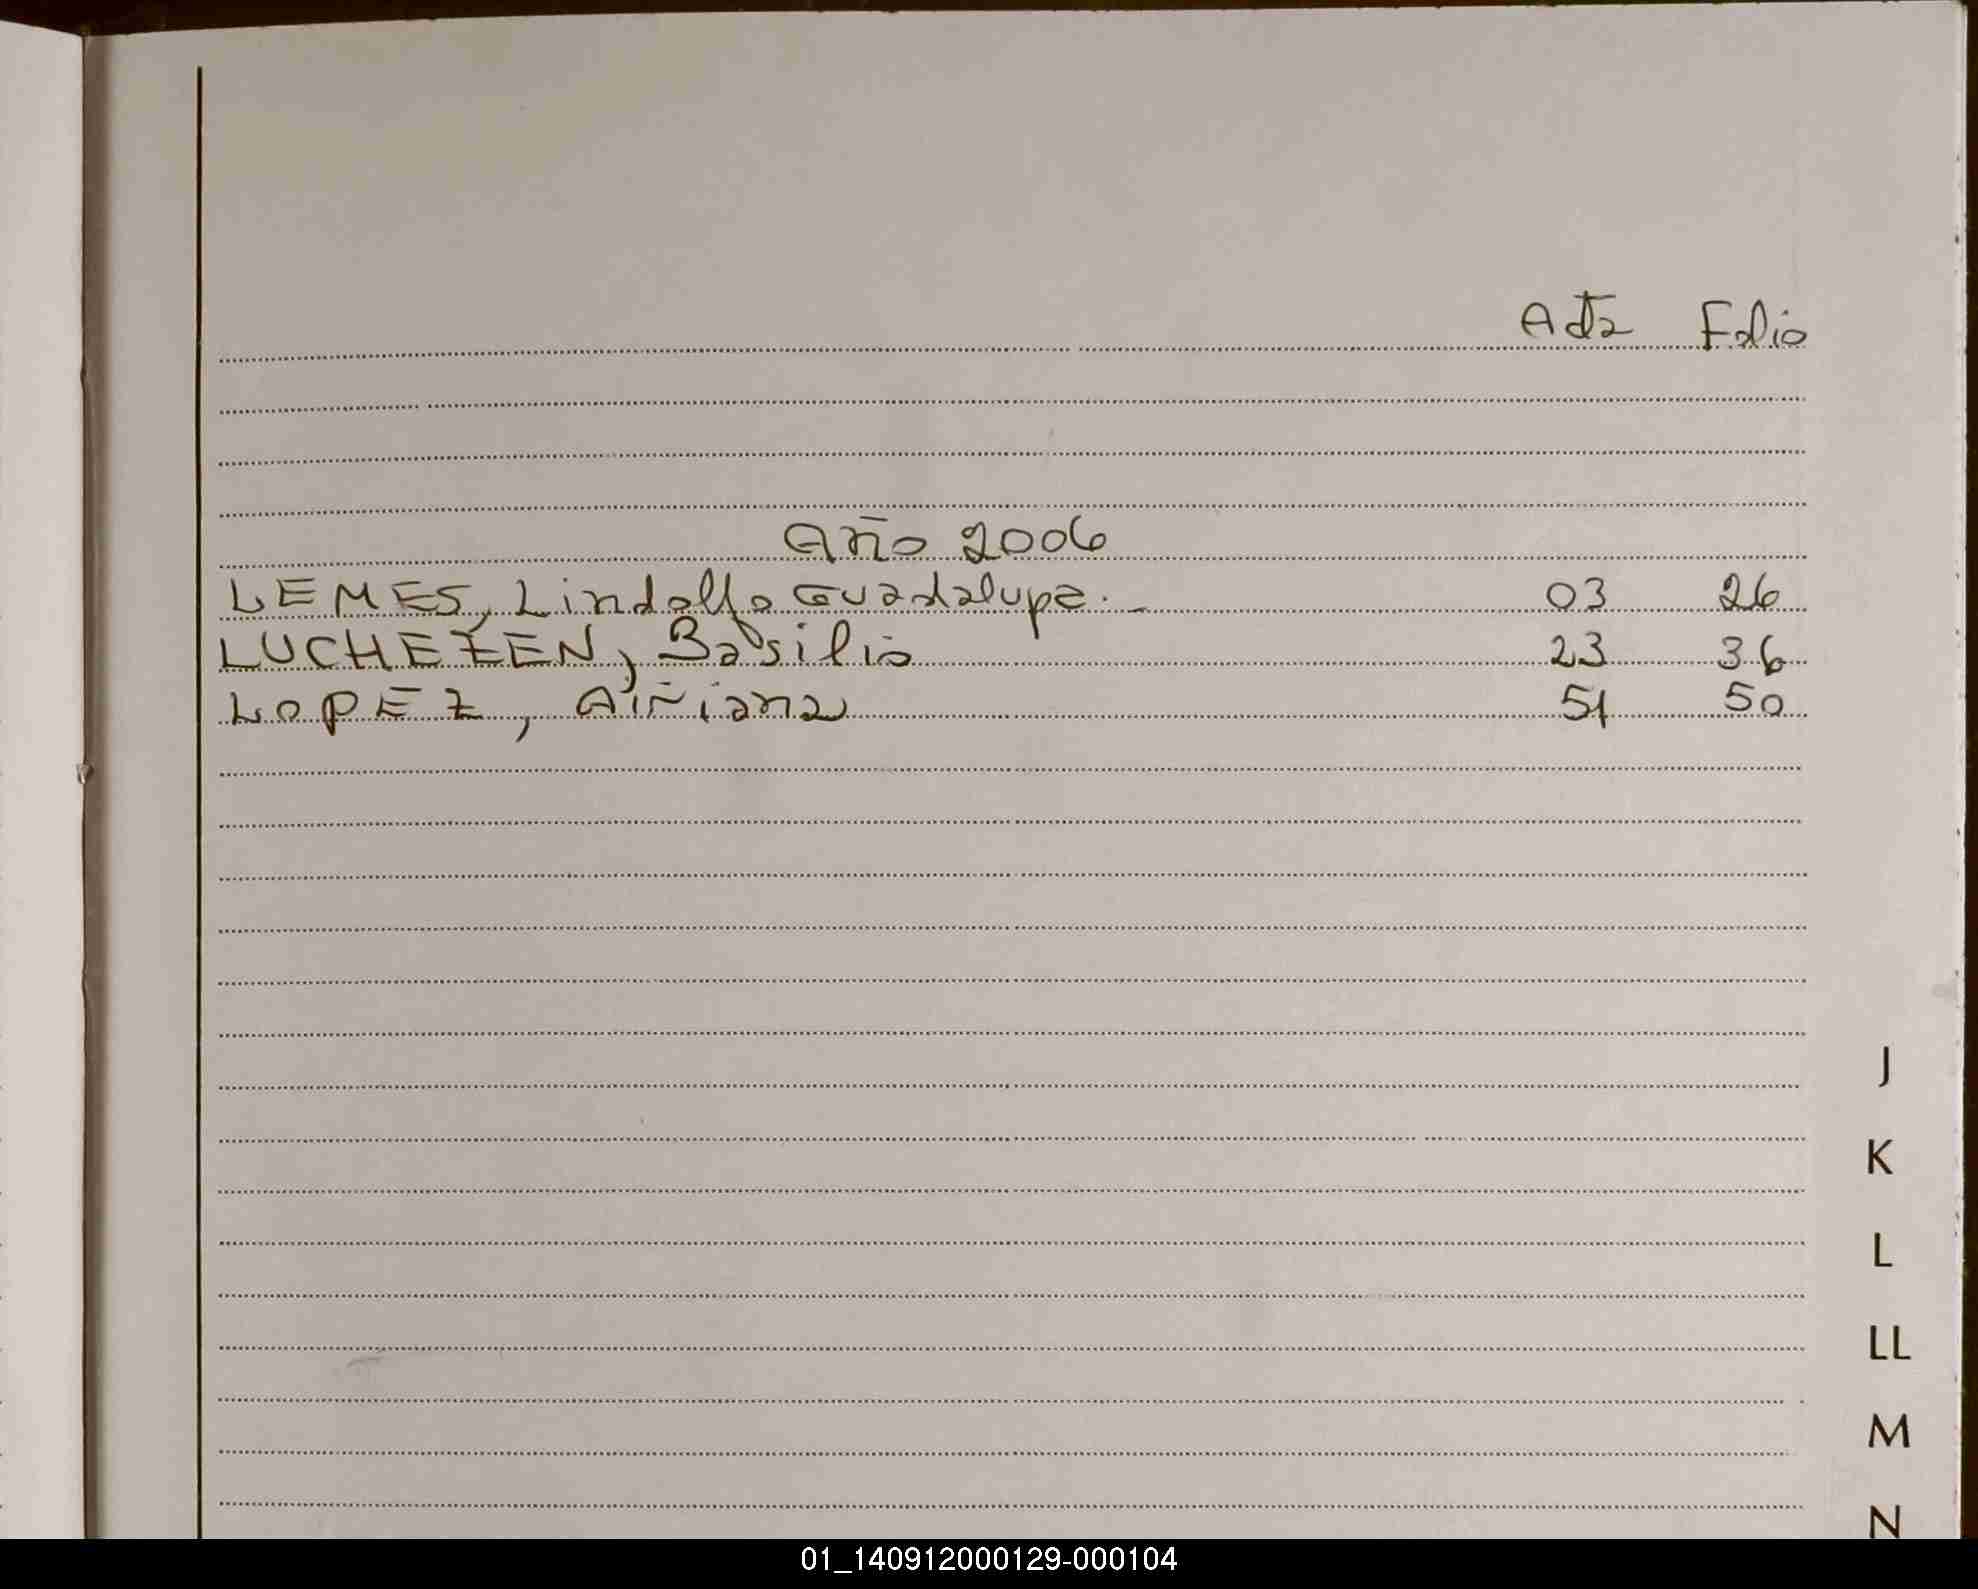 Acta Folio
Año 2006
LEMES, Lindolfo Guadalupe.- 03 26
LUCHEZEN, Basilio 23 36
LOPEZ, 51 50
J
K
L
LL
M
N
01_140912000129-000104